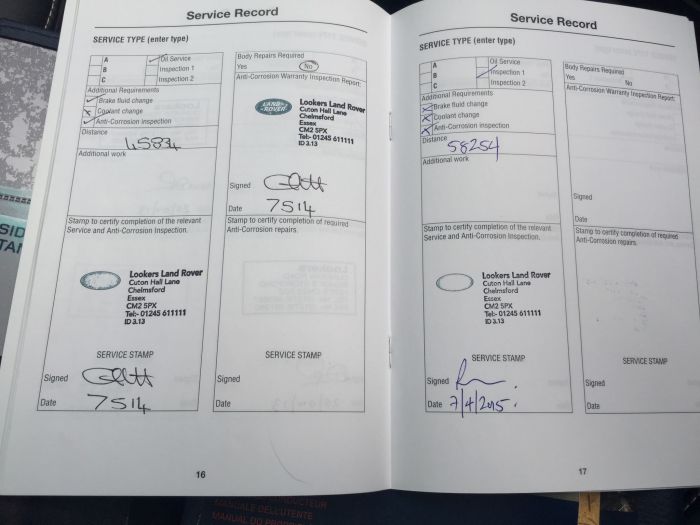 Service Record
SERVICE TYPE (enter type)
A Oil Service
B Inspection 1
C Inspection 2
Additional Requirements
Brake fluid change
Coolant change
Anti-Corrosion inspection
Distance
45834
Additional work
Stamp to certify completion of the relevant
Service and Anti-Corrosion Inspection.
Lookers Land Rover
Cuton Hall Lane
Chelmsford
Essex
CM2 5PX
Tel:- 01245 611111
ID 3.13
SERVICE STAMP
Signed
Date 7 5 14
Body Repairs Required
Yes No
Anti-Corrosion Warranty Inspection Report:
LAND ROVER
Lookers Land Rover
Cuton Hall Lane
Chelmsford
Essex
CM2 5PX
Tel:- 01245 611111
ID 3.13
Signed
Date 7 5 14
Stamp to certify completion of required
Anti-Corrosion repairs.
SERVICE STAMP
Signed
Date
16
Service Record
SERVICE TYPE (enter type)
A Oil Service
B Inspection 1
C Inspection 2
Additional Requirements
Brake fluid change
Coolant change
Anti-Corrosion inspection
Distance
58254
Additional work
Stamp to certify completion of the relevant
Service and Anti-Corrosion Inspection.
Lookers Land Rover
Cuton Hall Lane
Chelmsford
Essex
CM2 5PX
Tel:- 01245 611111
ID 3.13
SERVICE STAMP
Signed
Date 7/4/2015
Body Repairs Required
Yes No
Anti-Corrosion Warranty Inspection Report:
Signed
Date
Stamp to certify completion of required
Anti-Corrosion repairs.
SERVICE STAMP
Signed
Date
17
MANUALE DELL'UTENTE